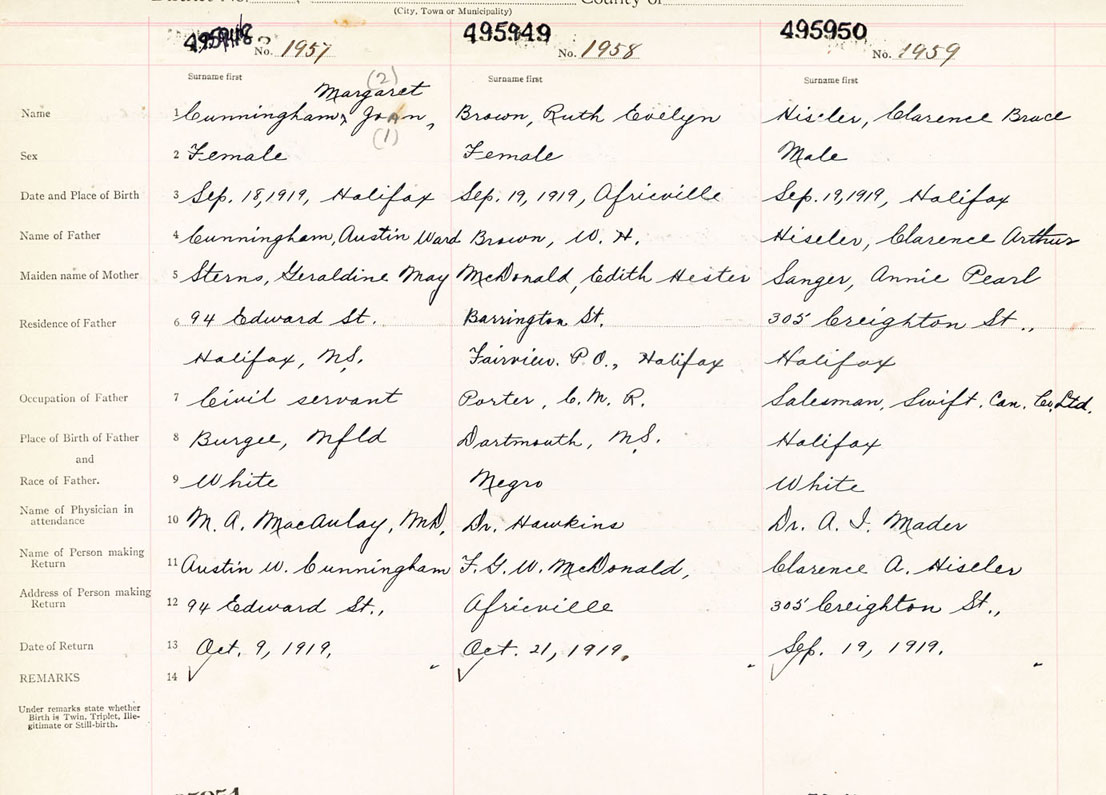 County of
(City, Town or Municipality)
495949
495950
No. 1957
No. 1958
No. 1959
Surname first
Surname first
Surname first
(2)
Margaret
Name 1 Cunningham, Joan, Brown, Ruth Evelyn Hiseler, Clarence Bruce
(1)
Sex 2 Female Female Male
Date and Place of Birth 3 Sep. 18, 1919, Halifax Sep. 19, 1919, Africville Sep. 19, 1919, Halifax
Name of Father 4 Cunningham, Austin Ward Brown, W. H. Hiseler, Clarence Arthur
Maiden name of Mother 5 Sterns, Geraldine May McDonald, Edith Hester Sanger, Annie Pearl
Residence of Father 6 94 Edward St. Barrington St. 305 Creighton St.,
Halifax, N.S. Fairview. P.O., Halifax Halifax
Occupation of Father 7 Civil servant Porter, C. N. R. Salesman, Swift. Can. Co. Ltd.
Place of Birth of Father 8 Burgeo, Nfld Dartmouth, N.S. Halifax
and
Race of Father. 9 White Negro White
Name of Physician in
attendance 10 M. A. MacAulay, M.D. Dr. Hawkins Dr. A. I. Mader
Name of Person making
Return 11 Austin W. Cunningham F. G. W. McDonald, Clarence A. Hiseler
Address of Person making
Return 12 94 Edward St., Africville 305 Creighton St.,
Date of Return 13 Oct. 9, 1919. Oct. 21, 1919. Sep. 19, 1919.
REMARKS 14
Under remarks state whether
Birth is Twin, Triplet, Ille-
gitimate or Still-birth.